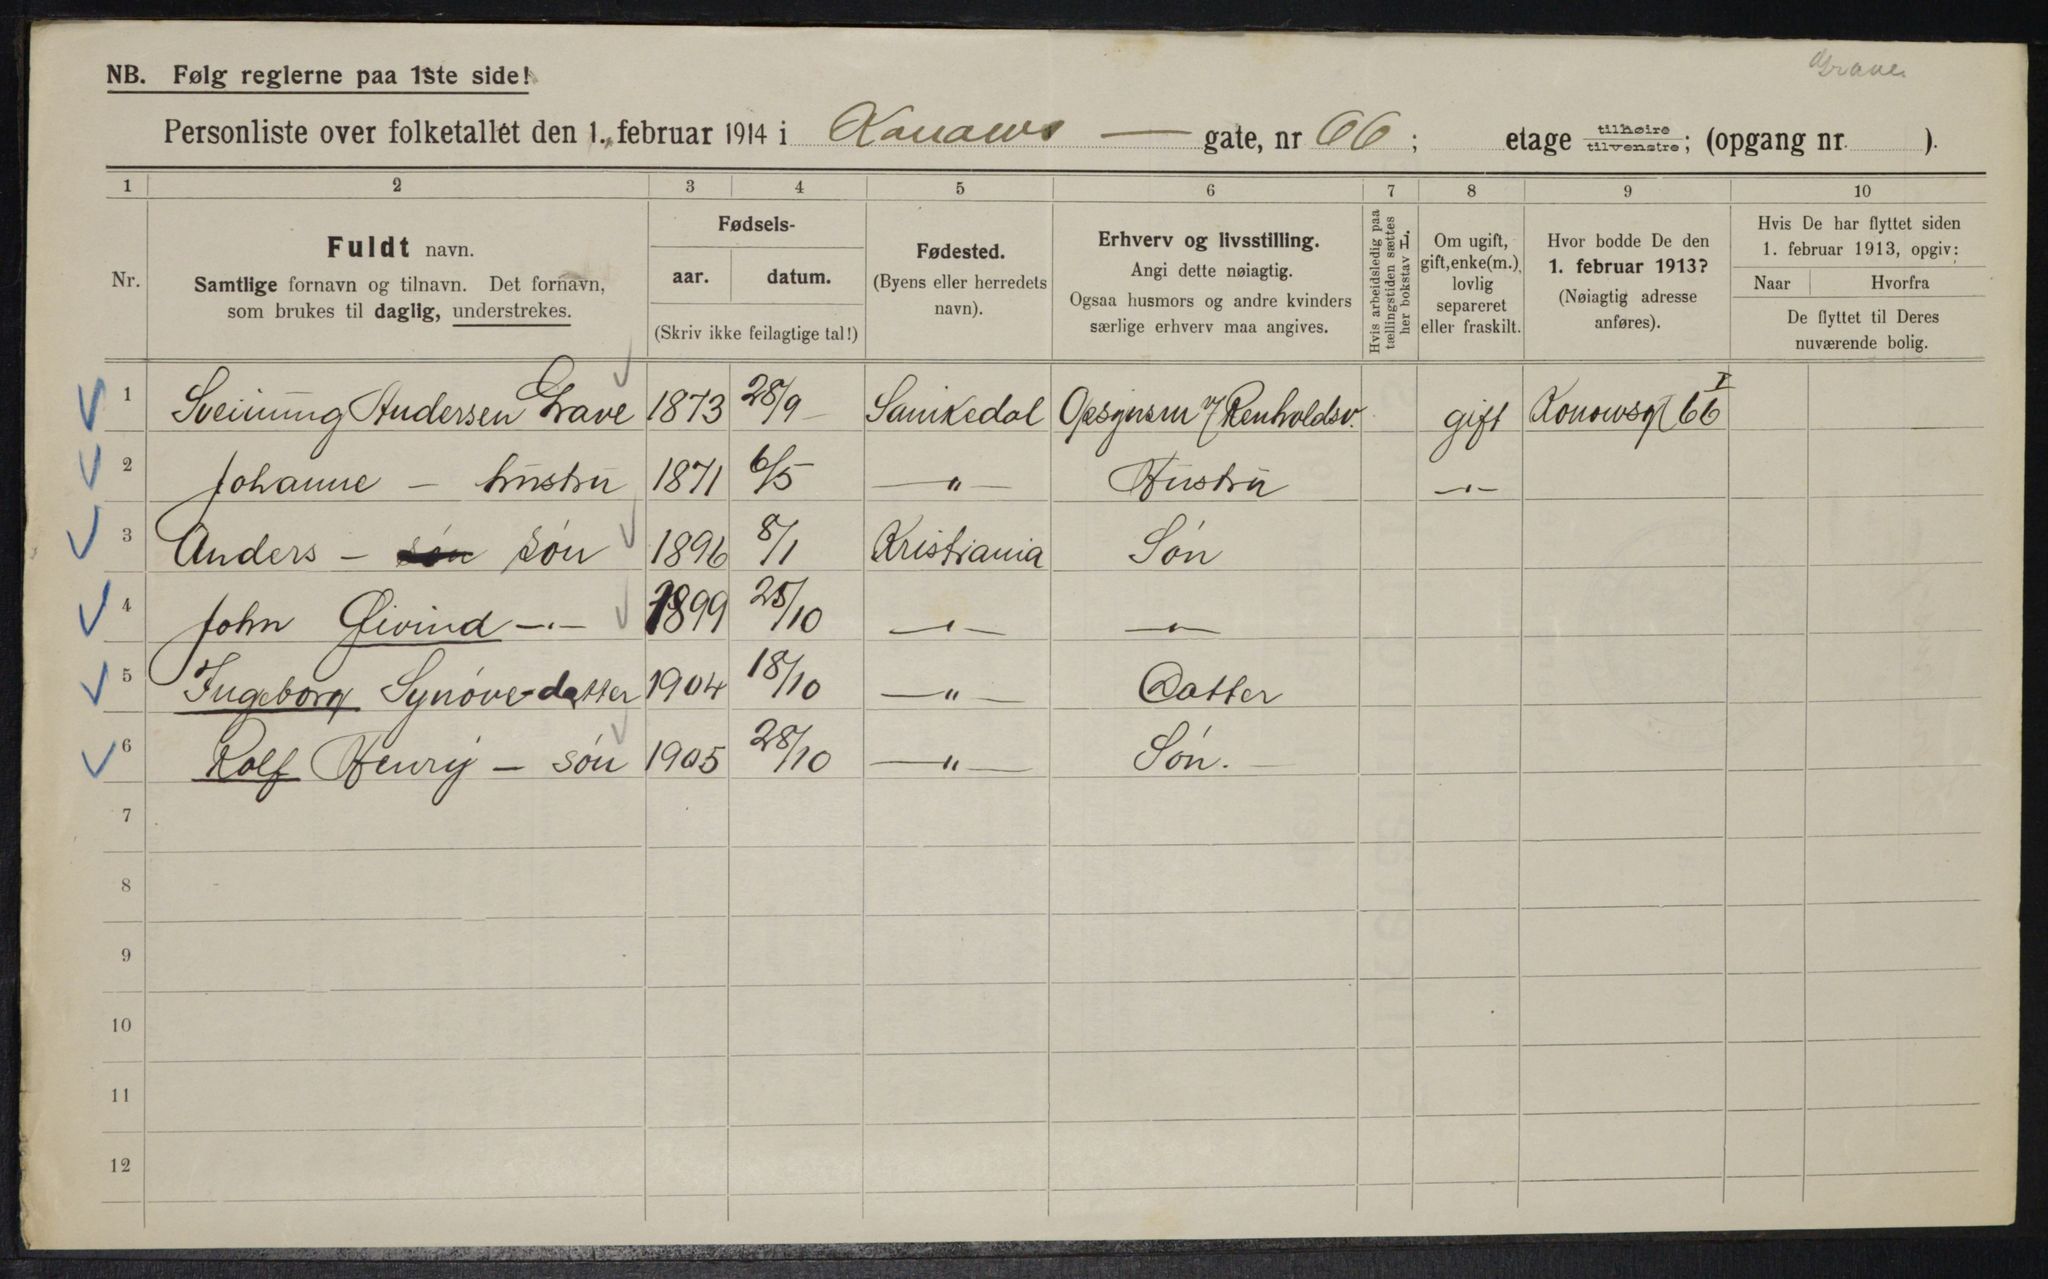 Grave.
NB. Følg reglerne paa 1ste side!
Personliste over folketallet den 1. februar 1914 i Konows — gate, nr 66; etage tilhøire tilvenstre; (opgang nr. ).
1 2 3 4 5 6 7 8 9 10
Nr.
Fuldt navn.
Samtlige fornavn og tilnavn. Det fornavn,
som brukes til daglig, understrekes.
Fødsels-
aar. datum.
(Skriv ikke feilagtige tal!)
Fødested.
(Byens eller herredets
navn).
Erhverv og livsstilling.
Angi dette nøiagtig.
Ogsaa husmors og andre kvinders
særlige erhverv maa angives.
Hvis arbeidsledig paa
tællingstiden sættes
her bokstav L.
Om ugift,
gift, enke(m.),
lovlig
separeret
eller fraskilt.
Hvor bodde De den
1. februar 1913?
(Nøiagtig adresse
anføres).
Hvis De har flyttet siden
1. februar 1913, opgiv:
Naar Hvorfra
De flyttet til Deres
nuværende bolig.
1 Sveinung Andersen Grave 1873 28/9 – Sanikedal Opsynsm v/ Renholdsv. gift Konowsgt 66 I
2 Johanne – hustru 1871 6/5 — " — Hustru — " —
3 Anders – søn søn 1896 8/1 Kristiania Søn
4 John Øivind — " — 1899 25/10 — " — — " —
5 Ingeborg Synøve - datter 1904 18/10 — " — Datter
6 Rolf Henry – søn 1905 28/10 — " — Søn. –
7
8
9
10
11
12